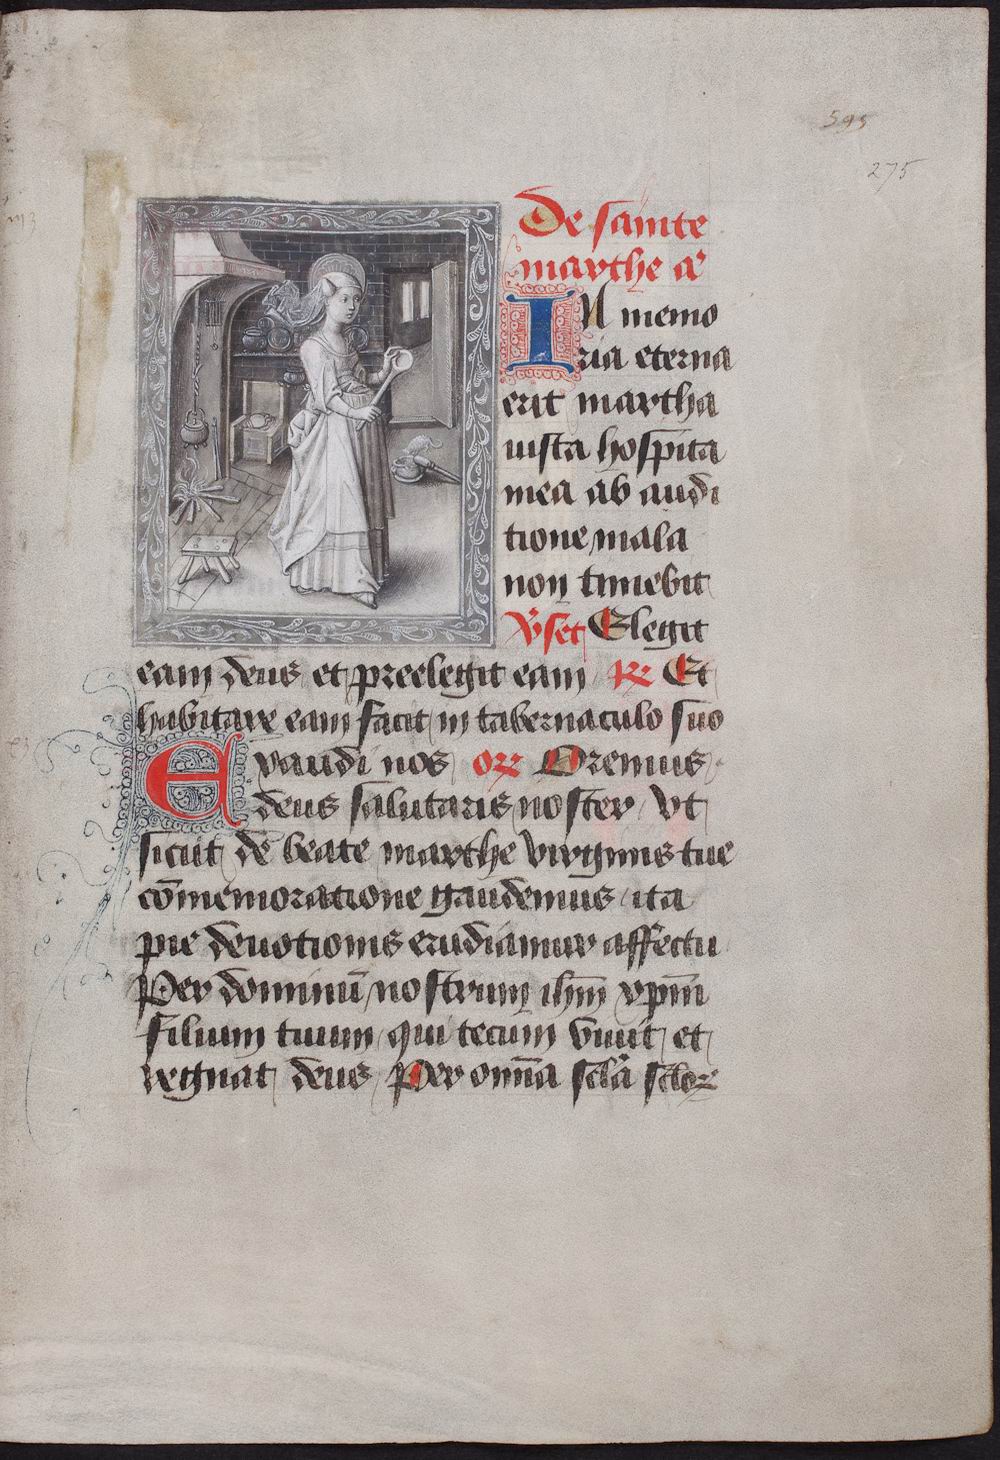 595
275
De sainte
marthe añ
IN memo
ria eterna
erit martha
iusta hospita
mea ab audi
tione mala
non timebit
v̄set Elegit
eam deus et preelegit eam R Et
habitare eam facit in tabernaculo suo
Exaudi nos or Oremus
deus salutaris noster vt
sicut de beate marthe virginis tue
cōmemoratione gaudemus ita
pie deuotionis erudiamur affectu
Per dominū nostrum ihm̄ xpm̄
filium tuum qui tecum viuit et
regnat deus Per omīa scl̄a sclor̄